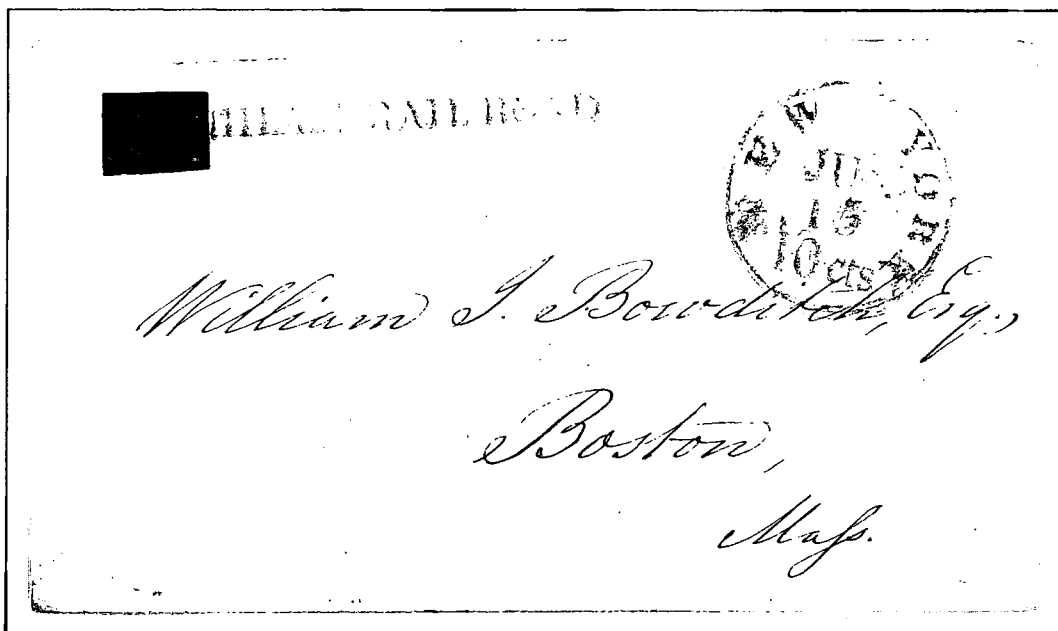 RAILROAD
NEW YORK
15
10 cts
William I. Bowditch, Esq.,
Boston,
Maſs.